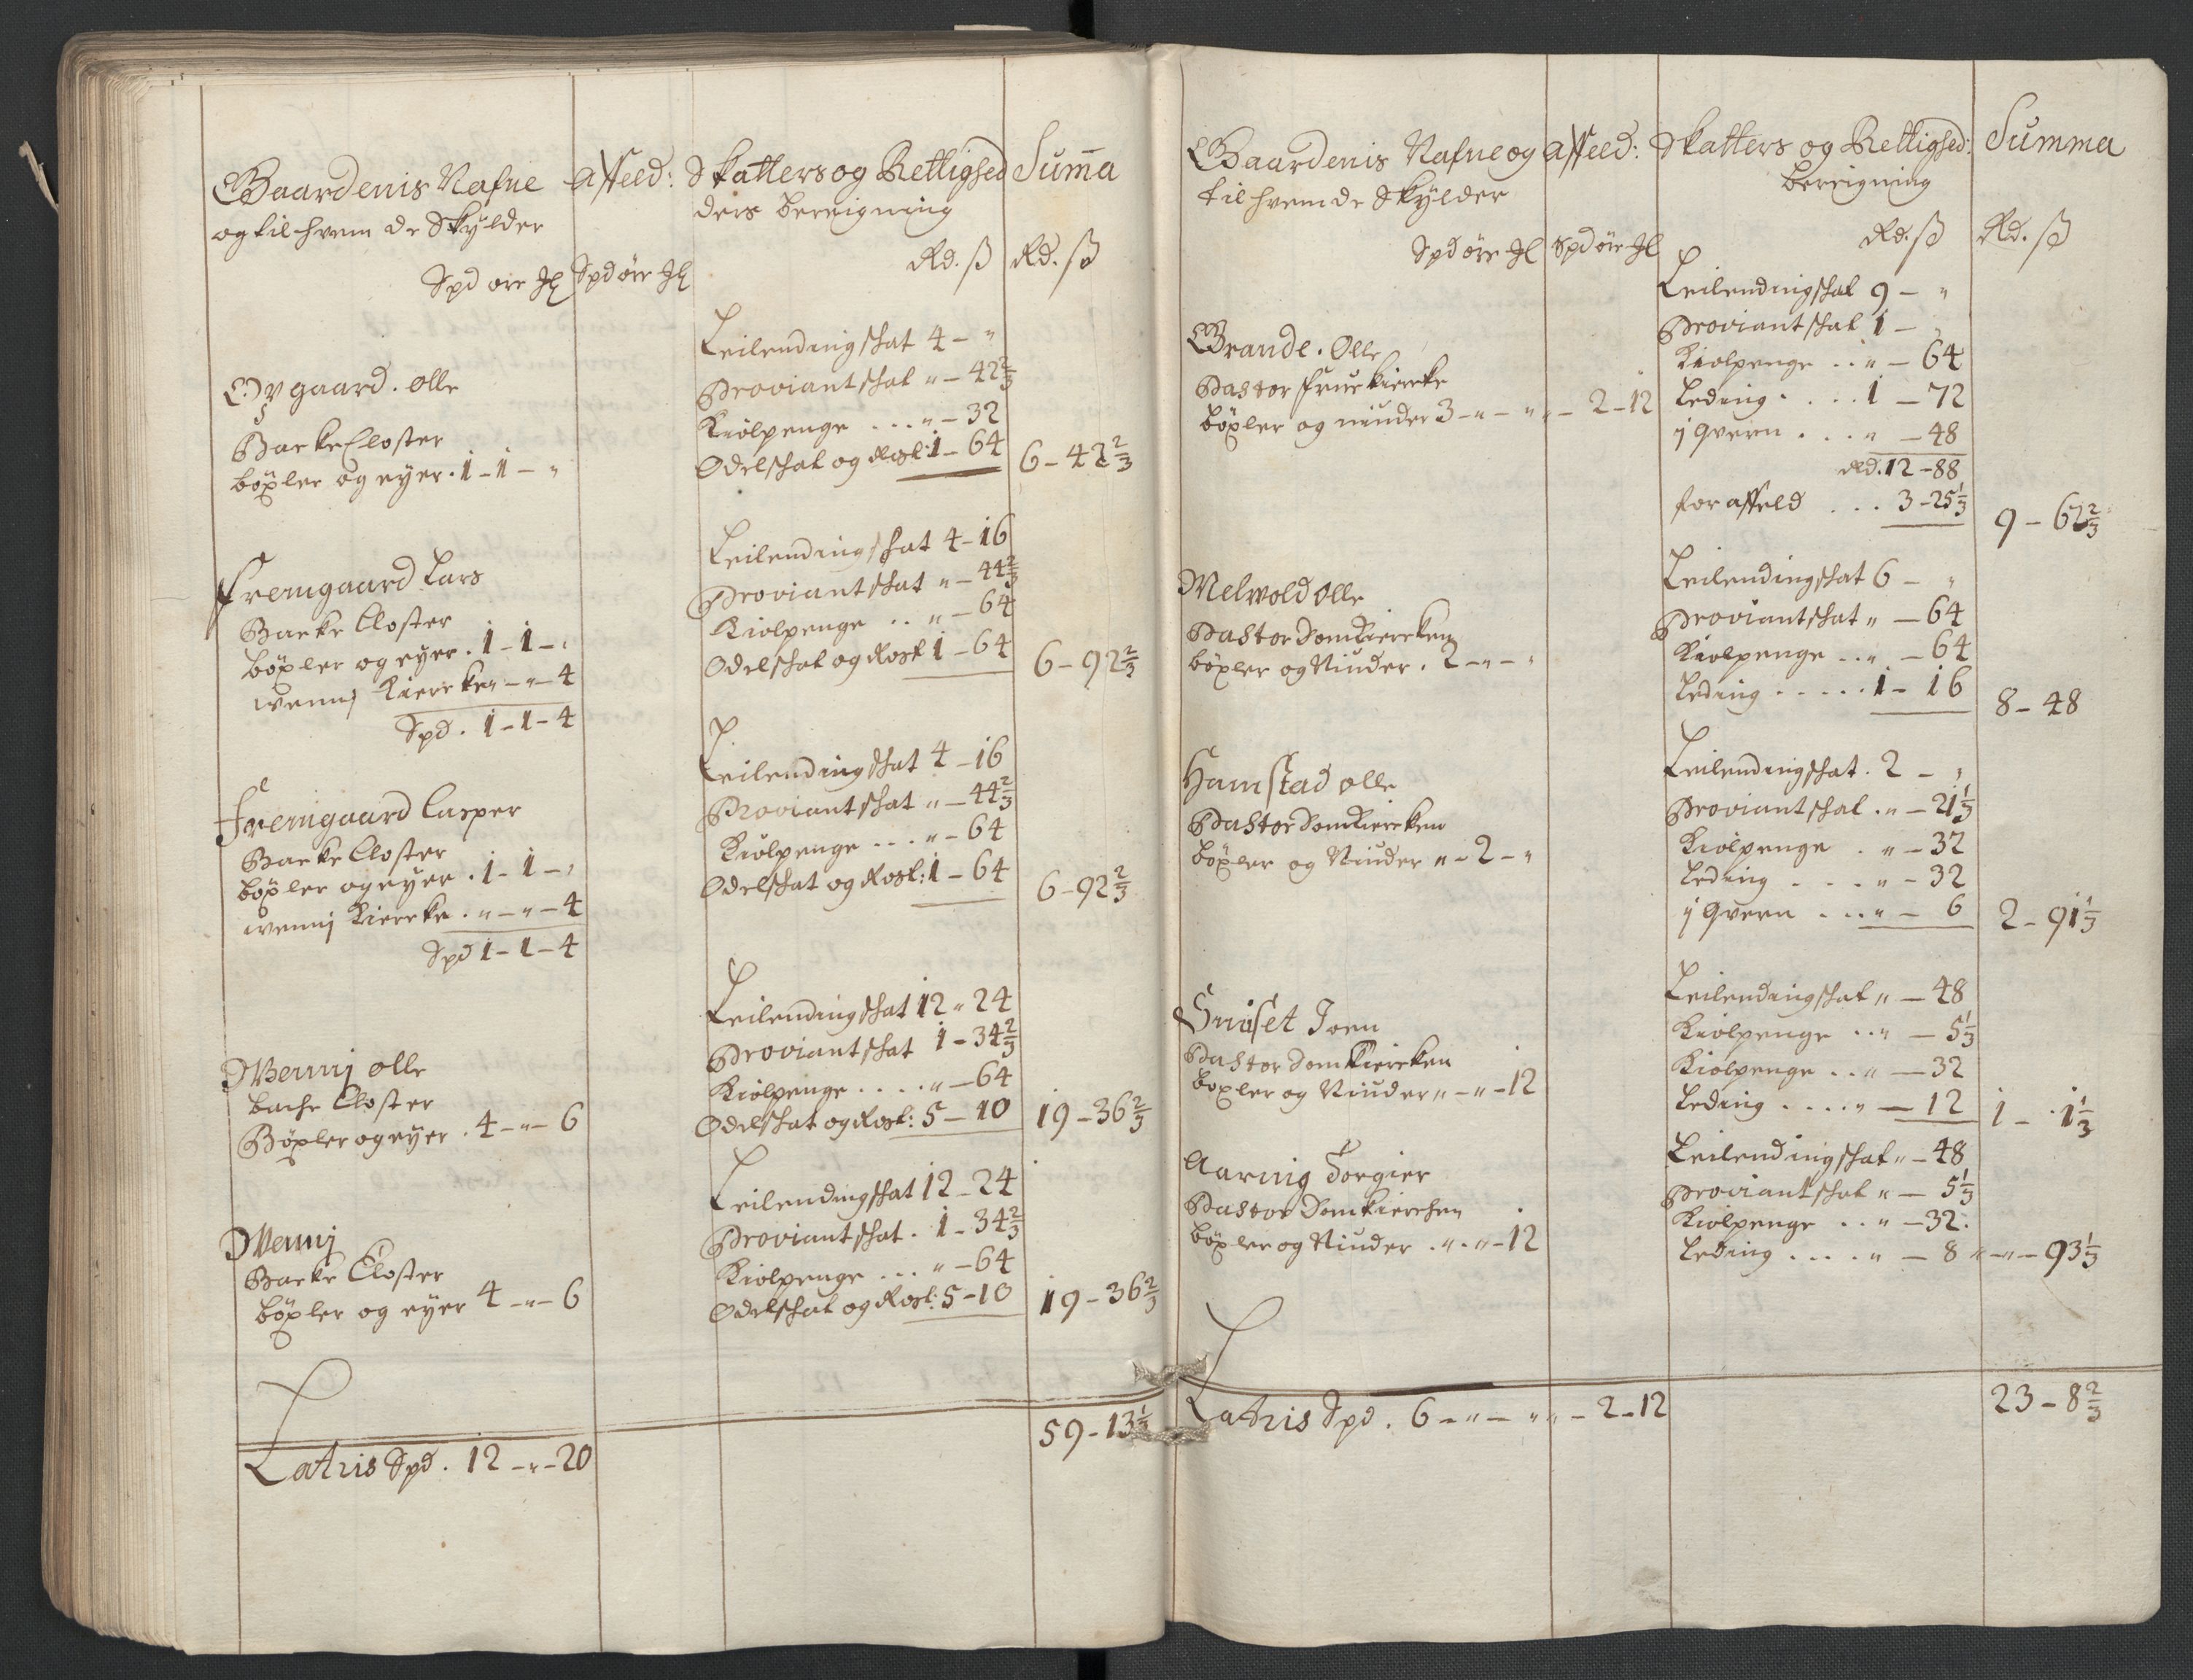 Gaardenis Nafne
og til hvem de Skÿlder
Spd ore Ɉl
affeld:
Spd öre Ɉl
Skatters og Rettighed
ders bereigning
Rd. ß
Summa
Rd. ß
Øÿgaard. Olle
Backe Closter
böxler og eÿer. 1 - 1 - "
Leilending skat 4 - "
Proviant skat " - 42 2/3
Kiolpenge ... " - 32
Odelskat og Rost: 1 - 64
6 - 42 2/3
Fremgaard Lars
Backe Closter
böxler og eÿer. 1 - 1 - "
wennj Kiercke " - " - 4
Spd. 1 - 1 - 4
Leilending skat 4 - 16
Proviant skat " - 44 2/3
Kiolpenge .. " - 64
Odelskat og Rost 1 - 64
6 - 92 2/3
Fremgaard Casper
Backe Closter
böxler og eÿer. 1 - 1 - "
wennj Kiercke. " - " - 4
Spd 1 - 1 - 4
Leilending skat 4 - 16
Proviant skat " - 44 2/3
Kiolpenge ... " - 64
Odelskat og Rost: 1 - 64
6 - 92 2/3
Wennj Olle
bache Closter
Böxler og eÿer. 4 - " - 6
Leilending skat 12 " 24
Proviant skat 1 - 34 2/3
Kiolpenge .... " - 64
Odelskat og Rost: 5 - 10
19 - 36 2/3
Wennj
Backe Closter
böxler og eÿer 4 - " - 6
Leilending skat 12 - 24
Proviant skat. 1 - 34 2/3
Kiolpenge ... " - 64
Odelskat og Rost: 5 - 10
19 - 36 2/3
Latris Spd. 12 - " - 20
59 - 13 1/3
Gaardenis Nafne og
til hvem de Skÿlder
Spd öre Ɉl
affeld:
Spd öre Ɉl
Skatters og Rettighed:
bereigning
Rd. ß
Summa
Rd. ß
Grande. Olle
Pastor frue kiercke
böxler og niuder 3 - " - " " - 2 - 12
Leilending skat 9 - "
Proviant skat 1 -
Kiolpenge .. " - 64
Leding .... 1 - 72
j Qvern ... " - 48
Rd. 12 - 88
for affeld ... 3 - 25 1/3
9 - 62 2/3
Melwold Olle
Pastor Domkiercken
böxler og Niuder. 2 - " - "
Leilending skat 6 - "
Proviant skat " - 64
Kiolpenge .. " - 64
Leding ..... 1 - 16
8 - 48
Hamstad Olle
Pastor Domkiercken
böxler og Niuder " - 2 - "
Leilending skat. 2 - "
Proviant skat. " - 21 1/3
Kiolpenge . " - 32
Leding .... " - 32
j Qvern ... " - 6
2 - 91 1/3
Sniiset Joen
Pastor Domkiercken
böxler og Niuder " - " - 12
Leilending skat " - 48
Kiolpenge .. " - 5 1/3
Kiolpenge .. " - 32
Leding .... " - 12
1 - 1 1/3
Aarnig Torgier
Pastor Domkierchen
böxler og Niuder. " - " - 12
Leilending skat " - 48
Proviant skat " - 5 1/3
Kiolpenge .. " - 32.
Leding .... " - 8
" - " - 93 1/3
Latris Spd. 6 - " - " " - 2 - 12
23 - 8 2/3